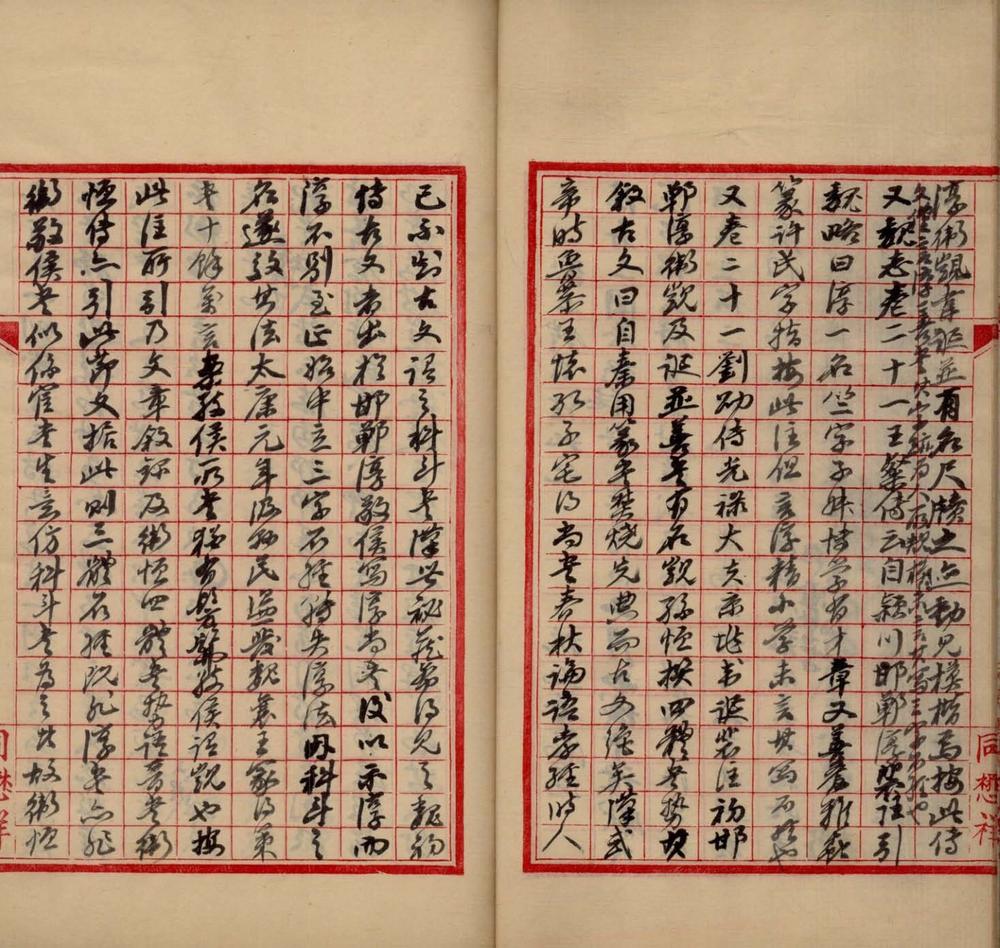 淳衛覬韋誕並有名尺牘之迹動見模楷焉按此傳
又魏志卷二十一王粲傳云自潁川邯鄲淳裴注引
魏略曰淳一名竺字子叔博學有才章又善蒼雅蟲
篆許氏字指按此注但言淳精小學未言其寫石經也
又卷二十一劉劭傳光祿大夫京兆韋誕裴注初邯
鄲淳衛覬及誕並善書有名覬孫恒撰四體書勢其
敘古文曰自秦用篆書焚燒先典而古文絕矣漢武
帝時魯恭王壞孔子宅得尚書春秋論語孝經時人
同懋祥
已不知古文謂之科斗書漢世祕藏希得見之魏初
傳古文者出於邯鄲淳敬侯寫淳尚書後以示淳而
淳不別至正始中立三字石經轉失淳法因科斗之
名遂效其法太康元年汲縣民盜發魏襄王冢得策
書十餘萬言案敬侯所書猶有髣髴敬侯謂覬也按
此注所引乃文章敘錄及衛恒四體書勢語晉書衛
恒傳亦引此節文据此則三體石經既非淳書亦非
衛敬侯書似係書生意仿科斗書為之故衛恒
同懋祥